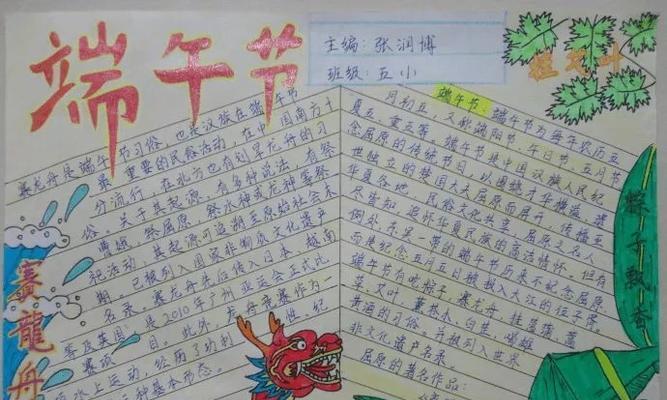 端午节
主编：张润博
班级：五小
挂艾叶
赛龙舟
粽子飘香
赛龙舟是端午节习俗，也是汉族在端午节
最重要的民俗活动，在中国南方十
分流行，在北方也有划旱龙舟的习
俗。关于其起源，有多种说法，有祭
曹娥，祭屈原，祭水神或龙神等祭
祀活动，其起源可追溯至原始社会末
期。已被列入国家非物质文化遗产
名录。赛龙舟先后传入日本、越南
等及英国，是2010年广州亚运会正式比
赛项目。此外，龙舟竞赛作为一
水上运动，经历了功利性、纪
三种基本形态。
端午节：端午节为每年农历五
月初五，又称端阳节、午日节、五月节
夏五、重五等。端午节是中国汉族人民纪
念屈原的传统节日，以围绕才华横溢、遗
世独立的楚国大夫屈原而展开，传播至
华夏各地，民俗文化共享，屈原之名人
尽皆知，追怀华夏民族的高洁情怀。但有
例外，东吴一带的端午节历来不纪念屈原，
而是纪念五月五日被投入大江的伍子胥，
端午节有吃粽子，赛龙舟，挂菖蒲、蒿
草、艾叶，薰苍术、白芷，喝雄
黄酒的习俗。并被列入世界
非文化遗产名录。
屈原的著名作品：